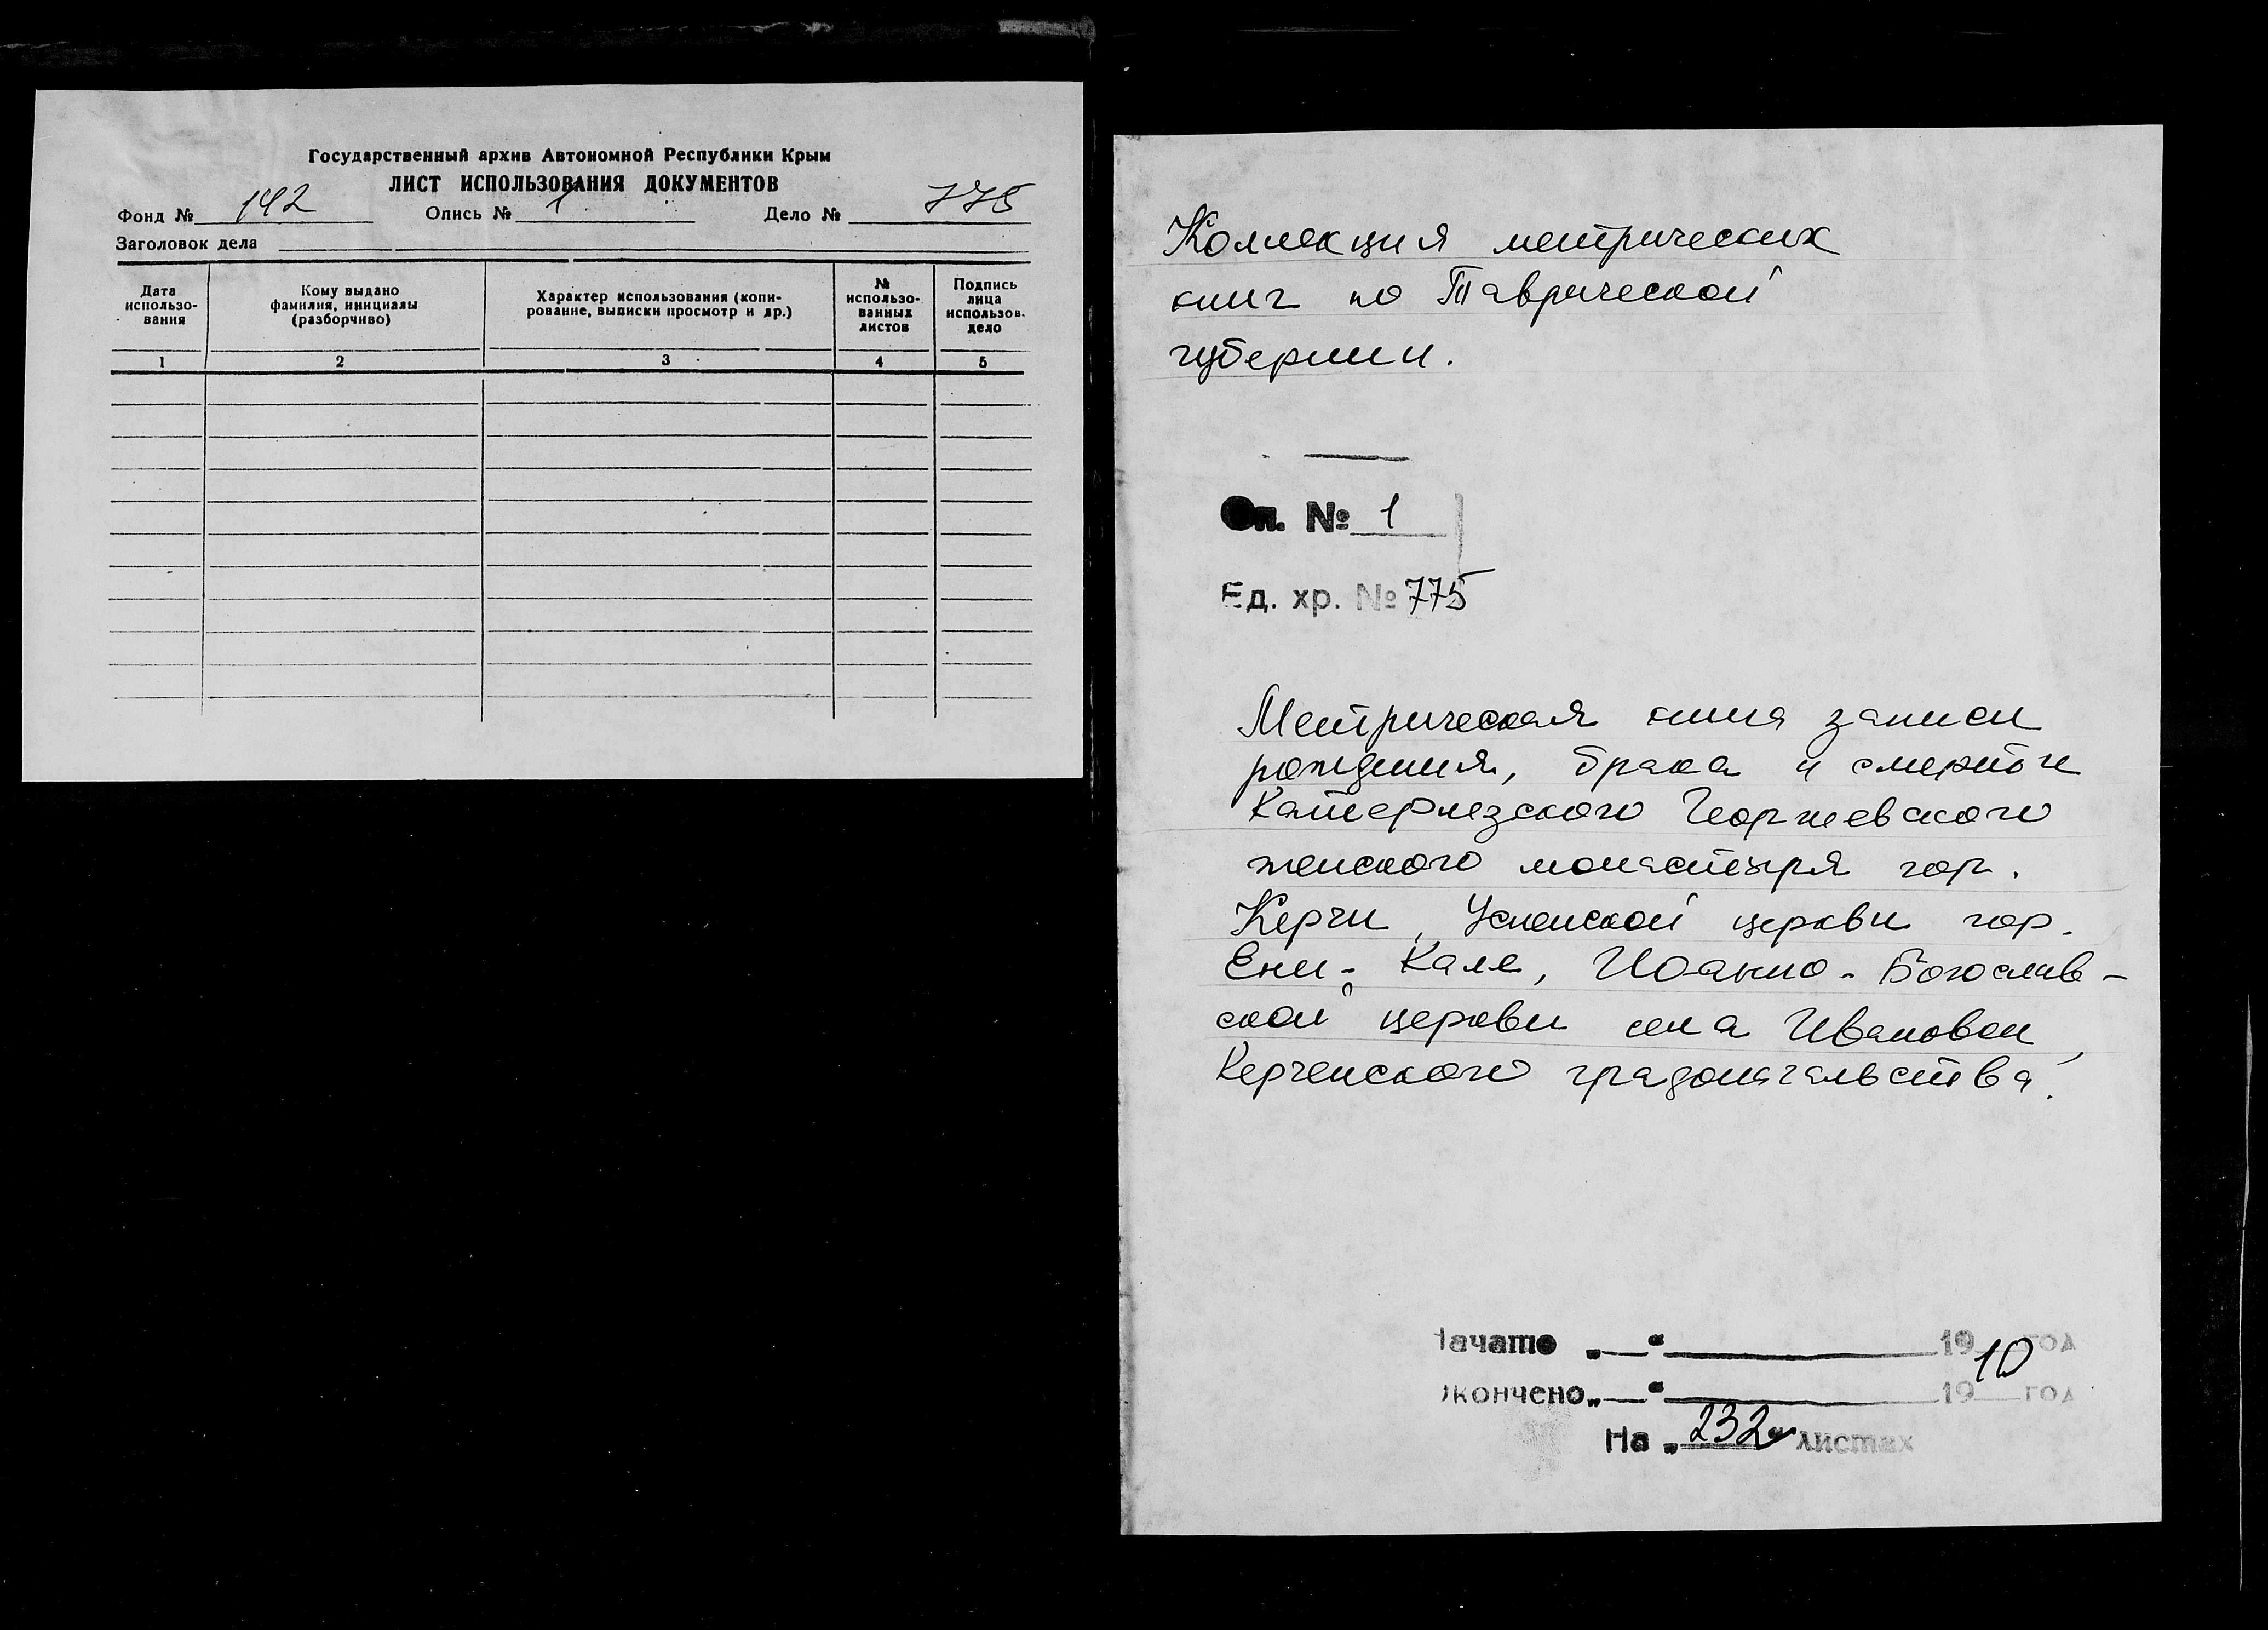 Государственный архив Автономной Республики Крым
ЛИСТ ИСПОЛЬЗОВАНИЯ ДОКУМЕНТОВ
Фонд № 142 Опись № 1 Дело № 775
Заголовок дела
Дата использо-вания
Кому выдано фамилия, инициалы (разборчиво)
Характер использования (копи-рование, выписки просмотр и др.)
№ использо-ванных листов
Подпись лица использов. дело
1 2 3 4 5
Коллекция метрических
книг по Таврической
губернии.
Оп. № 1
Ед. хр. № 775
Метрическая книга записи
рождения, брака и смерти
Катерлезского Георгиевского
женского монастыря гор.
Керчи, Успенской церкви гор.
Ени-Кале, Иоанно-Богослов-
ской церкви села Ивановки,
Керченского градоначальства.
Начато „ “ 1910 год
Окончено „ “ 19 год
На „ 232 “ листах